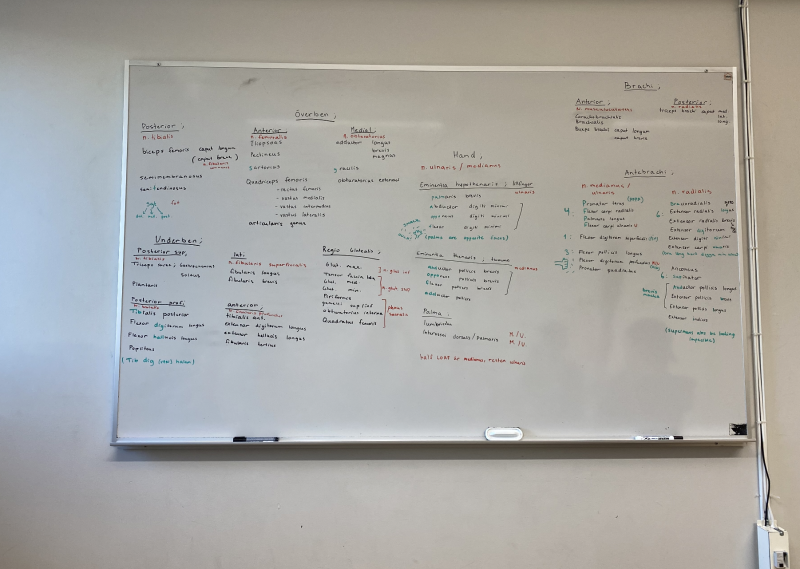 Överben;
Posterior;
n. tibialis
biceps femoris caput longum
(caput breve)
semimembranosus
semitendinosus
Anterior;
n. femoralis
Iliopsoas
Pectineus
Sartorius
Quadriceps femoris
- rectus femoris
- vastus medialis
- vastus intermedius
- vastus lateralis
articularis genus
Medial;
n. obturatorius
adductor longus
brevis
magnus
gracilis
obturatorius externus
Underben;
Posterior sup;
n. tibialis
Triceps surae; Gastrocnemius
Soleus
Plantaris
Posterior prof;
n. tibialis
Tibialis posterior
Flexor digitorum longus
Flexor hallucis longus
Popliteus
lat;
n. fibularis superficialis
fibularis longus
fibularis brevis
anterior;
tibialis ant.
extensor digitorum longus
extensor hallucis longus
fibularis tertius
Regio Glutealis;
Glut. max.
Tensor fascia lata
Glut. med.
Glut. min.
n. glut inf
n. glut sup
Piriformis
gemelli sup/inf
obturatorius internus
Quadratus femoris
plexus sacralis
Hand;
n. ulnaris / medianus
Eminentia hypothenaris; lillfinger
ulnaris
palmaris brevis
abductor digiti minimi
opponens digiti minimi
flexor digiti minimi
Eminentia thenaris; tumme
abductor pollicis brevis
opponens pollicis brevis
flexor pollicis brevis
adductor pollicis
medianus
Palma;
lumbricales
interossei dorsalis/palmaris
M/U
M/U
half LOAF är medianus, resten ulnaris
Brachi;
Anterior;
n. musculocutaneus
Coracobrachialis
Brachialis
Biceps brachi caput longum
caput breve
Posterior;
n. radialis
triceps brachi caput med
lat.
long.
Antebrachi;
n. medianus / ulnaris
4:
Pronator teres
Flexor carpi radialis
Palmaris longus
Flexor carpi ulnaris
1: Flexor digitorum superficialis
3: Flexor pollicis longus
Flexor digitorum profundus
Pronator quadratus
n. radialis
6:
Brachioradialis
Extensor radialis longus
Extensor radialis brevis
Extensor digitorum
Extensor digiti minimi
Extensor carpi ulnaris
Anconeus
6: supinator
Abductor pollicis longus
Extensor pollicis brevis
Extensor pollicis longus
Extensor indicis